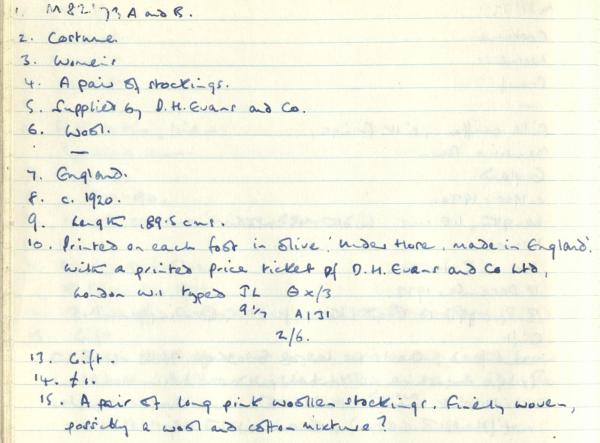 1. M82'73 A and B.
2. Costume
3. Women's
4. A pair of stockings.
5. Supplied by D.H.Evans and Co.
6. Wool.
—
7. England.
8. c. 1920.
9. Length 89.5 cms.
10. Printed on each foot in olive: 'Under Hose, made in England'.
With a printed price ticket of D.H. Evans and Co Ltd,
London W.1 typed JL Θx/3
9½ A131
2/6.
13. Gift.
14. £1.
15. A pair of long pink woollen stockings. Finely woven,
possibly a wool and cotton mixture?